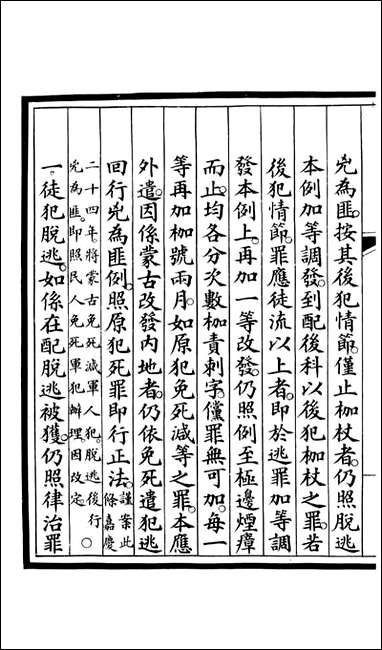 兇為匪。按其後犯情節。僅止枷杖者。仍照脫逃
本例加等調發。到配後科以後犯枷杖之罪。若
後犯情節。罪應徒流以上者。即於逃罪加等調
發本例上。再加一等改發。仍照例至極邊煙瘴
而止。均各分次數枷責刺字。儻罪無可加。每一
等再加枷號兩月。如原犯免死減等之罪。本應
外遣。因係蒙古改發內地者。仍依免死遣犯逃
回行兇為匪例。照原犯死罪即行正法。謹案此條嘉慶
二十四年。將蒙古免死減軍人犯。脫逃後行兇為匪。即照民人免死軍犯辦理。因改定。○
一。徒犯脫逃。如係在配脫逃被獲。仍照律治罪